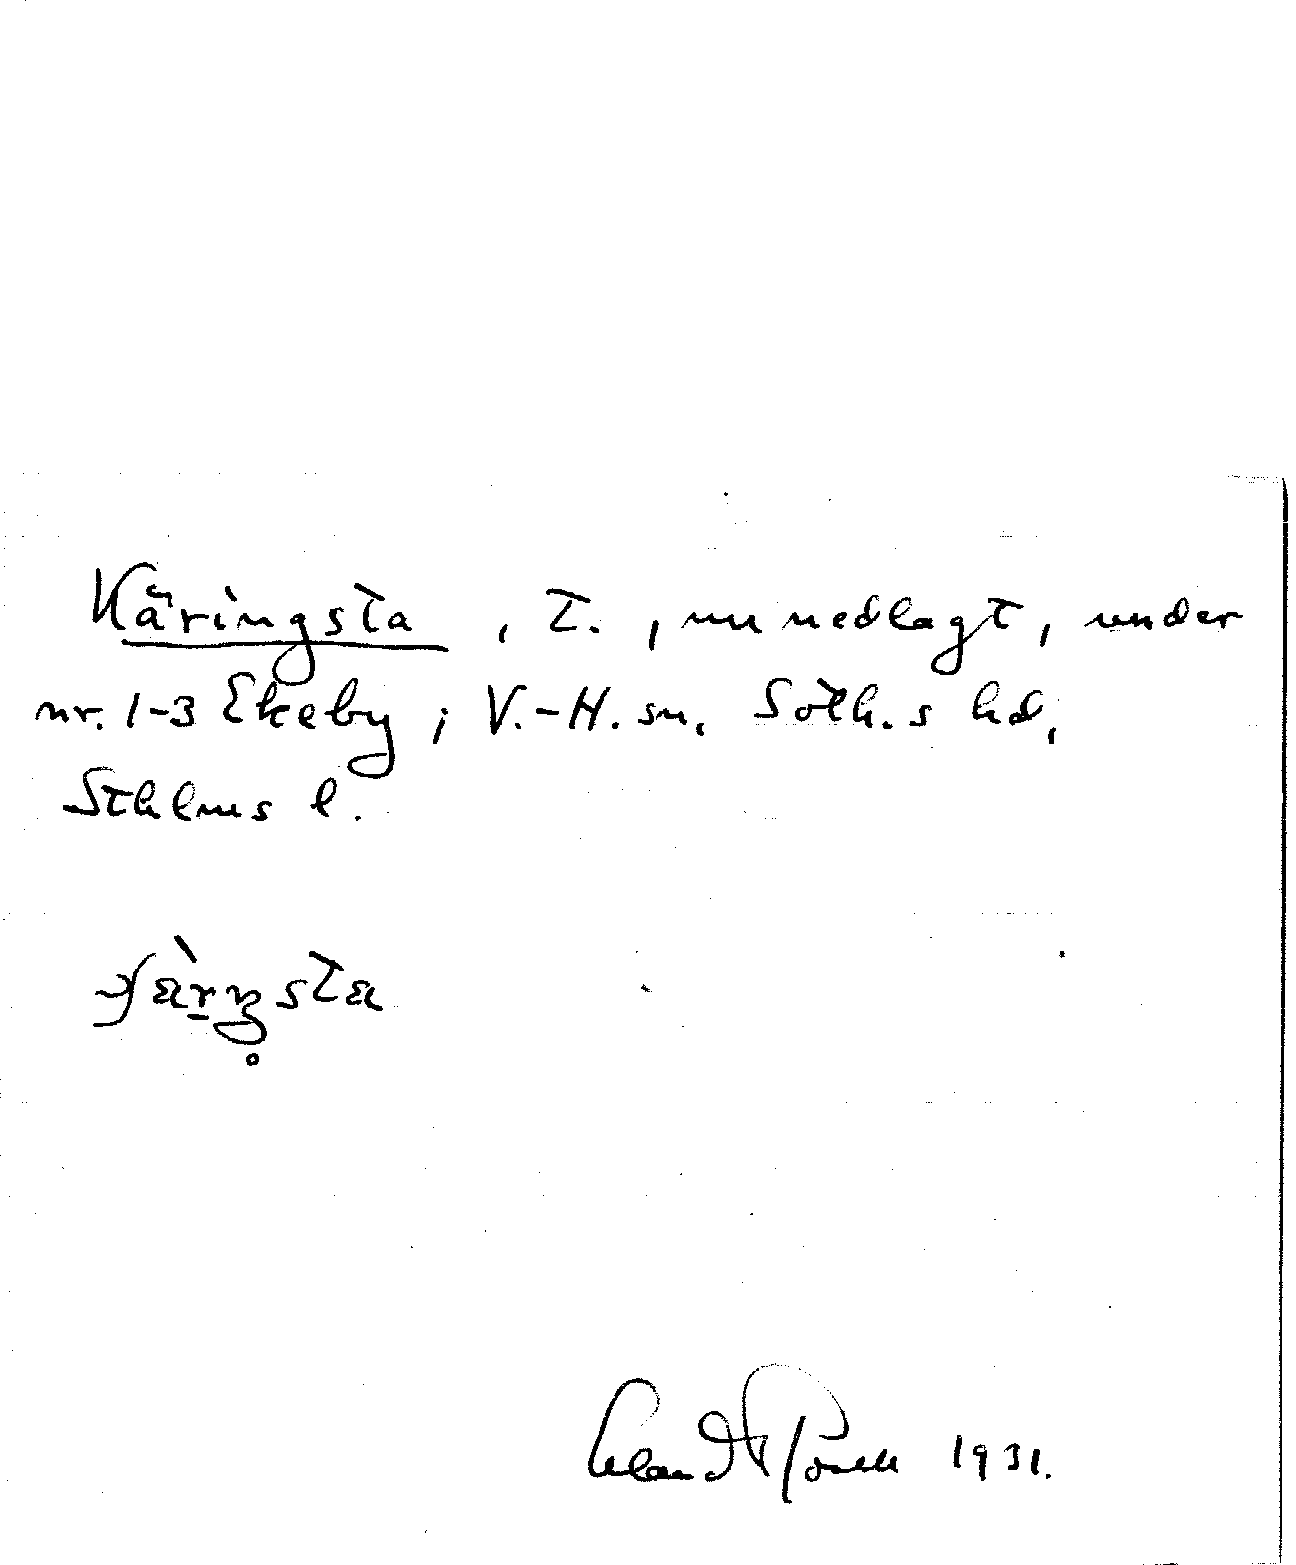 Käringsta, T., nu nedlagt, under
nr. 1-3 Ekeby; V.-H. sn. Soth.s hd,
Sthlms l.
1931.